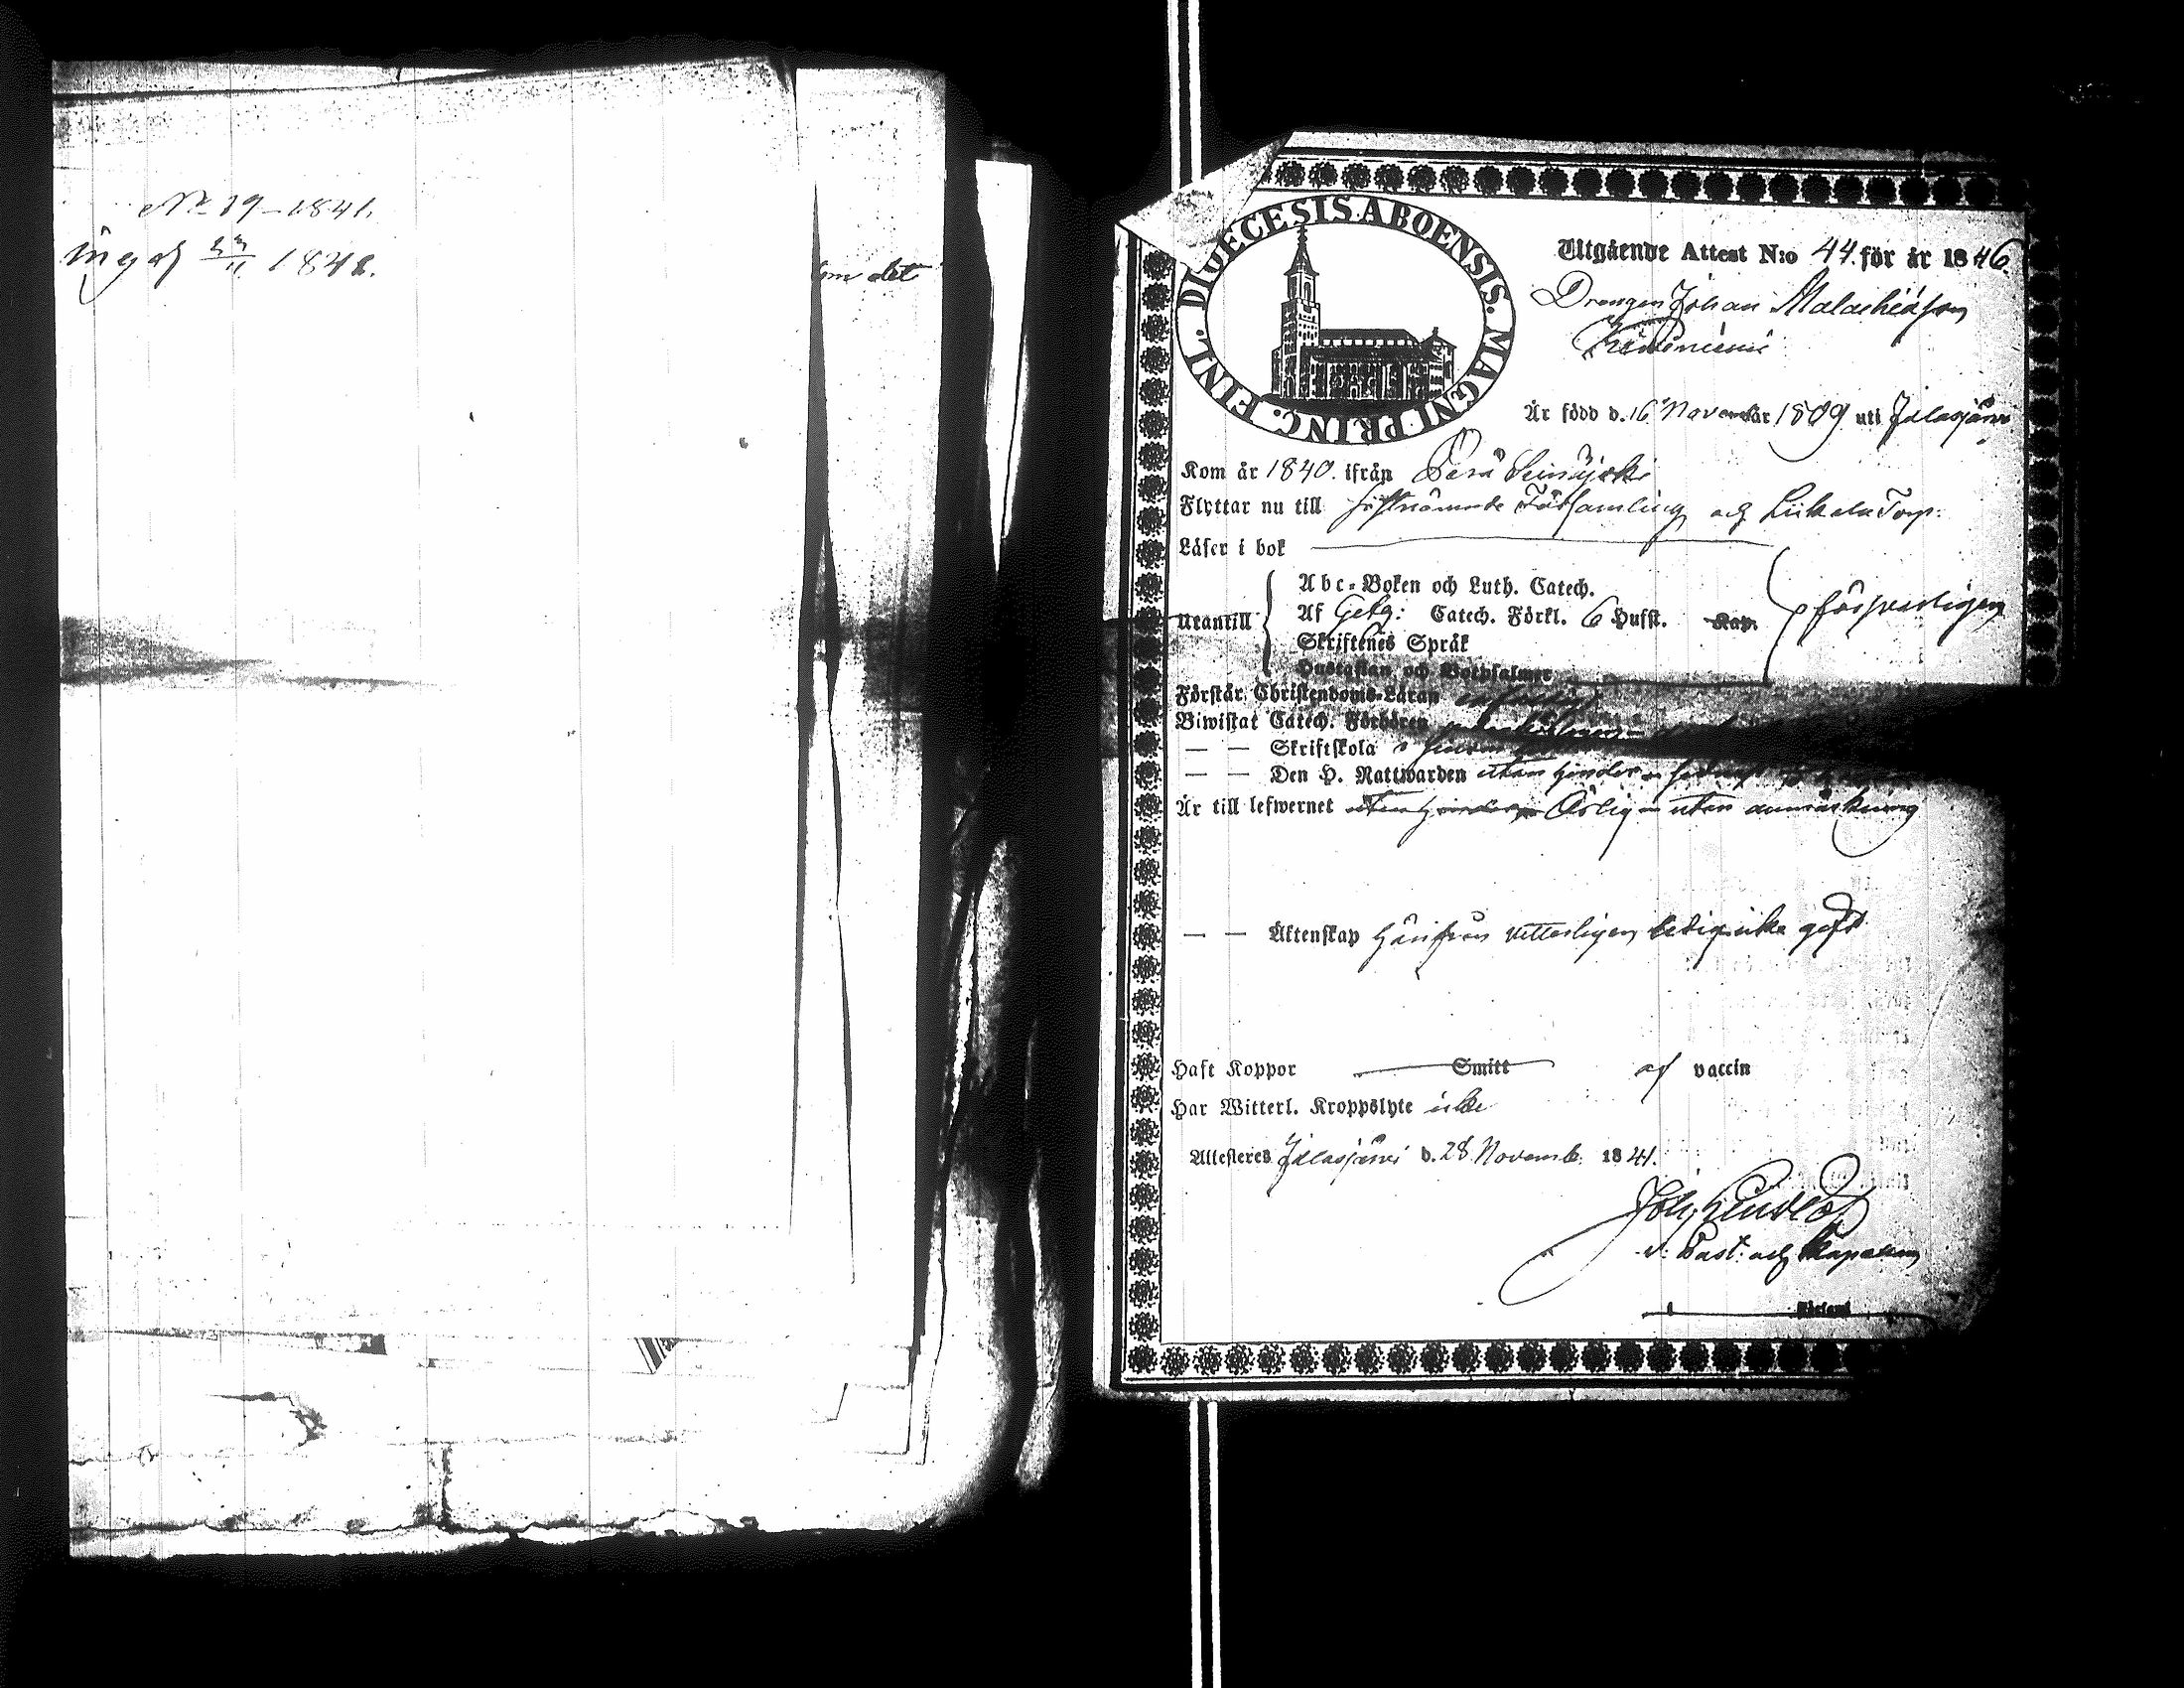 No 19 – 1841.
ing af 23/11 1841.
om det
DIOECESIS ABOENSIS. MAGNI PRINC. FINL.
Utgående Attest N:o 44. för år 1846.
Drengen Johan Malachiasson
Är född d. 16 Novemb år 1809 uti Jalasjärvi
Kom år 1840. ifrån Perä Seinäjoki
Flyttar nu till sistnämnde Församling och Liikala Torp.
Läser i bok
Utantill
Abc-Boken och Luth. Catech.
Af Getz: Catech. Förkl. 6 Hufst. Kap.
försvarligen
Skriftenes Språk
Hustaflan och Botpsalmer
Förstår Christendoms-Läran
Biwistat Catech. Förhören
— — Skriftskola
— — Den H. Nattwarden utan hinder
Är till lefwernet utan hinder Ärlig utan anmärkning
— — Äktenskap härifrån vetterligen ledig icke gift
Haft Koppor Smitt af vaccin
Har Witterl. Kroppslyte icke
Attesteres Jalasjärvi d. 28 Novemb. 1841.
v. Past: och Kapellan